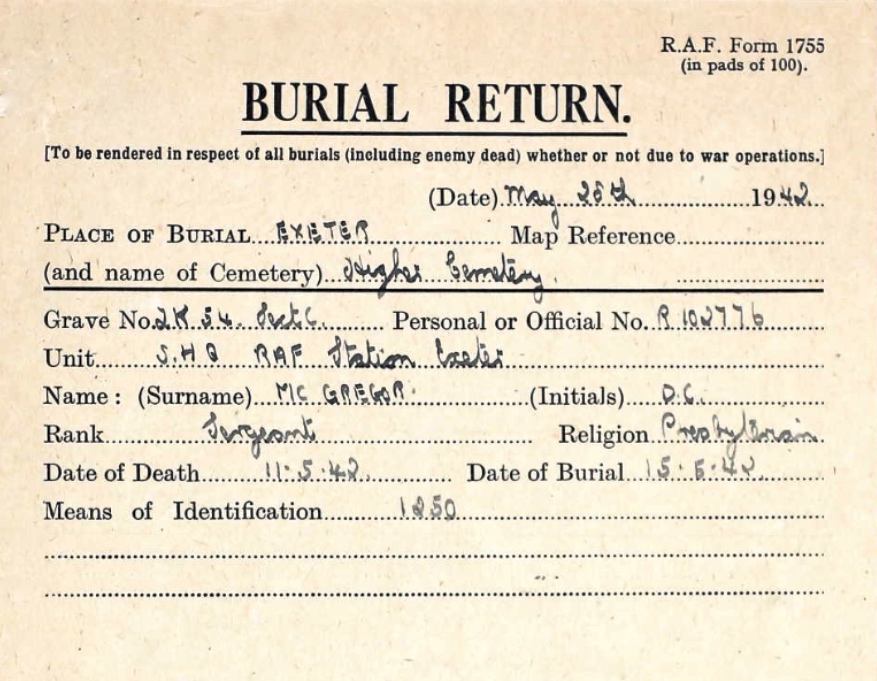 R.A.F. Form 1755
(in pads of 100).
BURIAL RETURN.
[To be rendered in respect of all burials (including enemy dead) whether or not due to war operations.]
(Date) May 25th 1942
PLACE OF BURIAL EXETER Map Reference
(and name of Cemetery) Higher Cemetery.
Grave No. 2K 54. Sect C. Personal or Official No. R 102776
Unit S.H.Q RAF Station Exeter
Name: (Surname) MC GREGOR. (Initials) D.C.
Rank Sergeant Religion Presbyterain.
Date of Death 11.5.42. Date of Burial 15.5.42
Means of Identification 1250